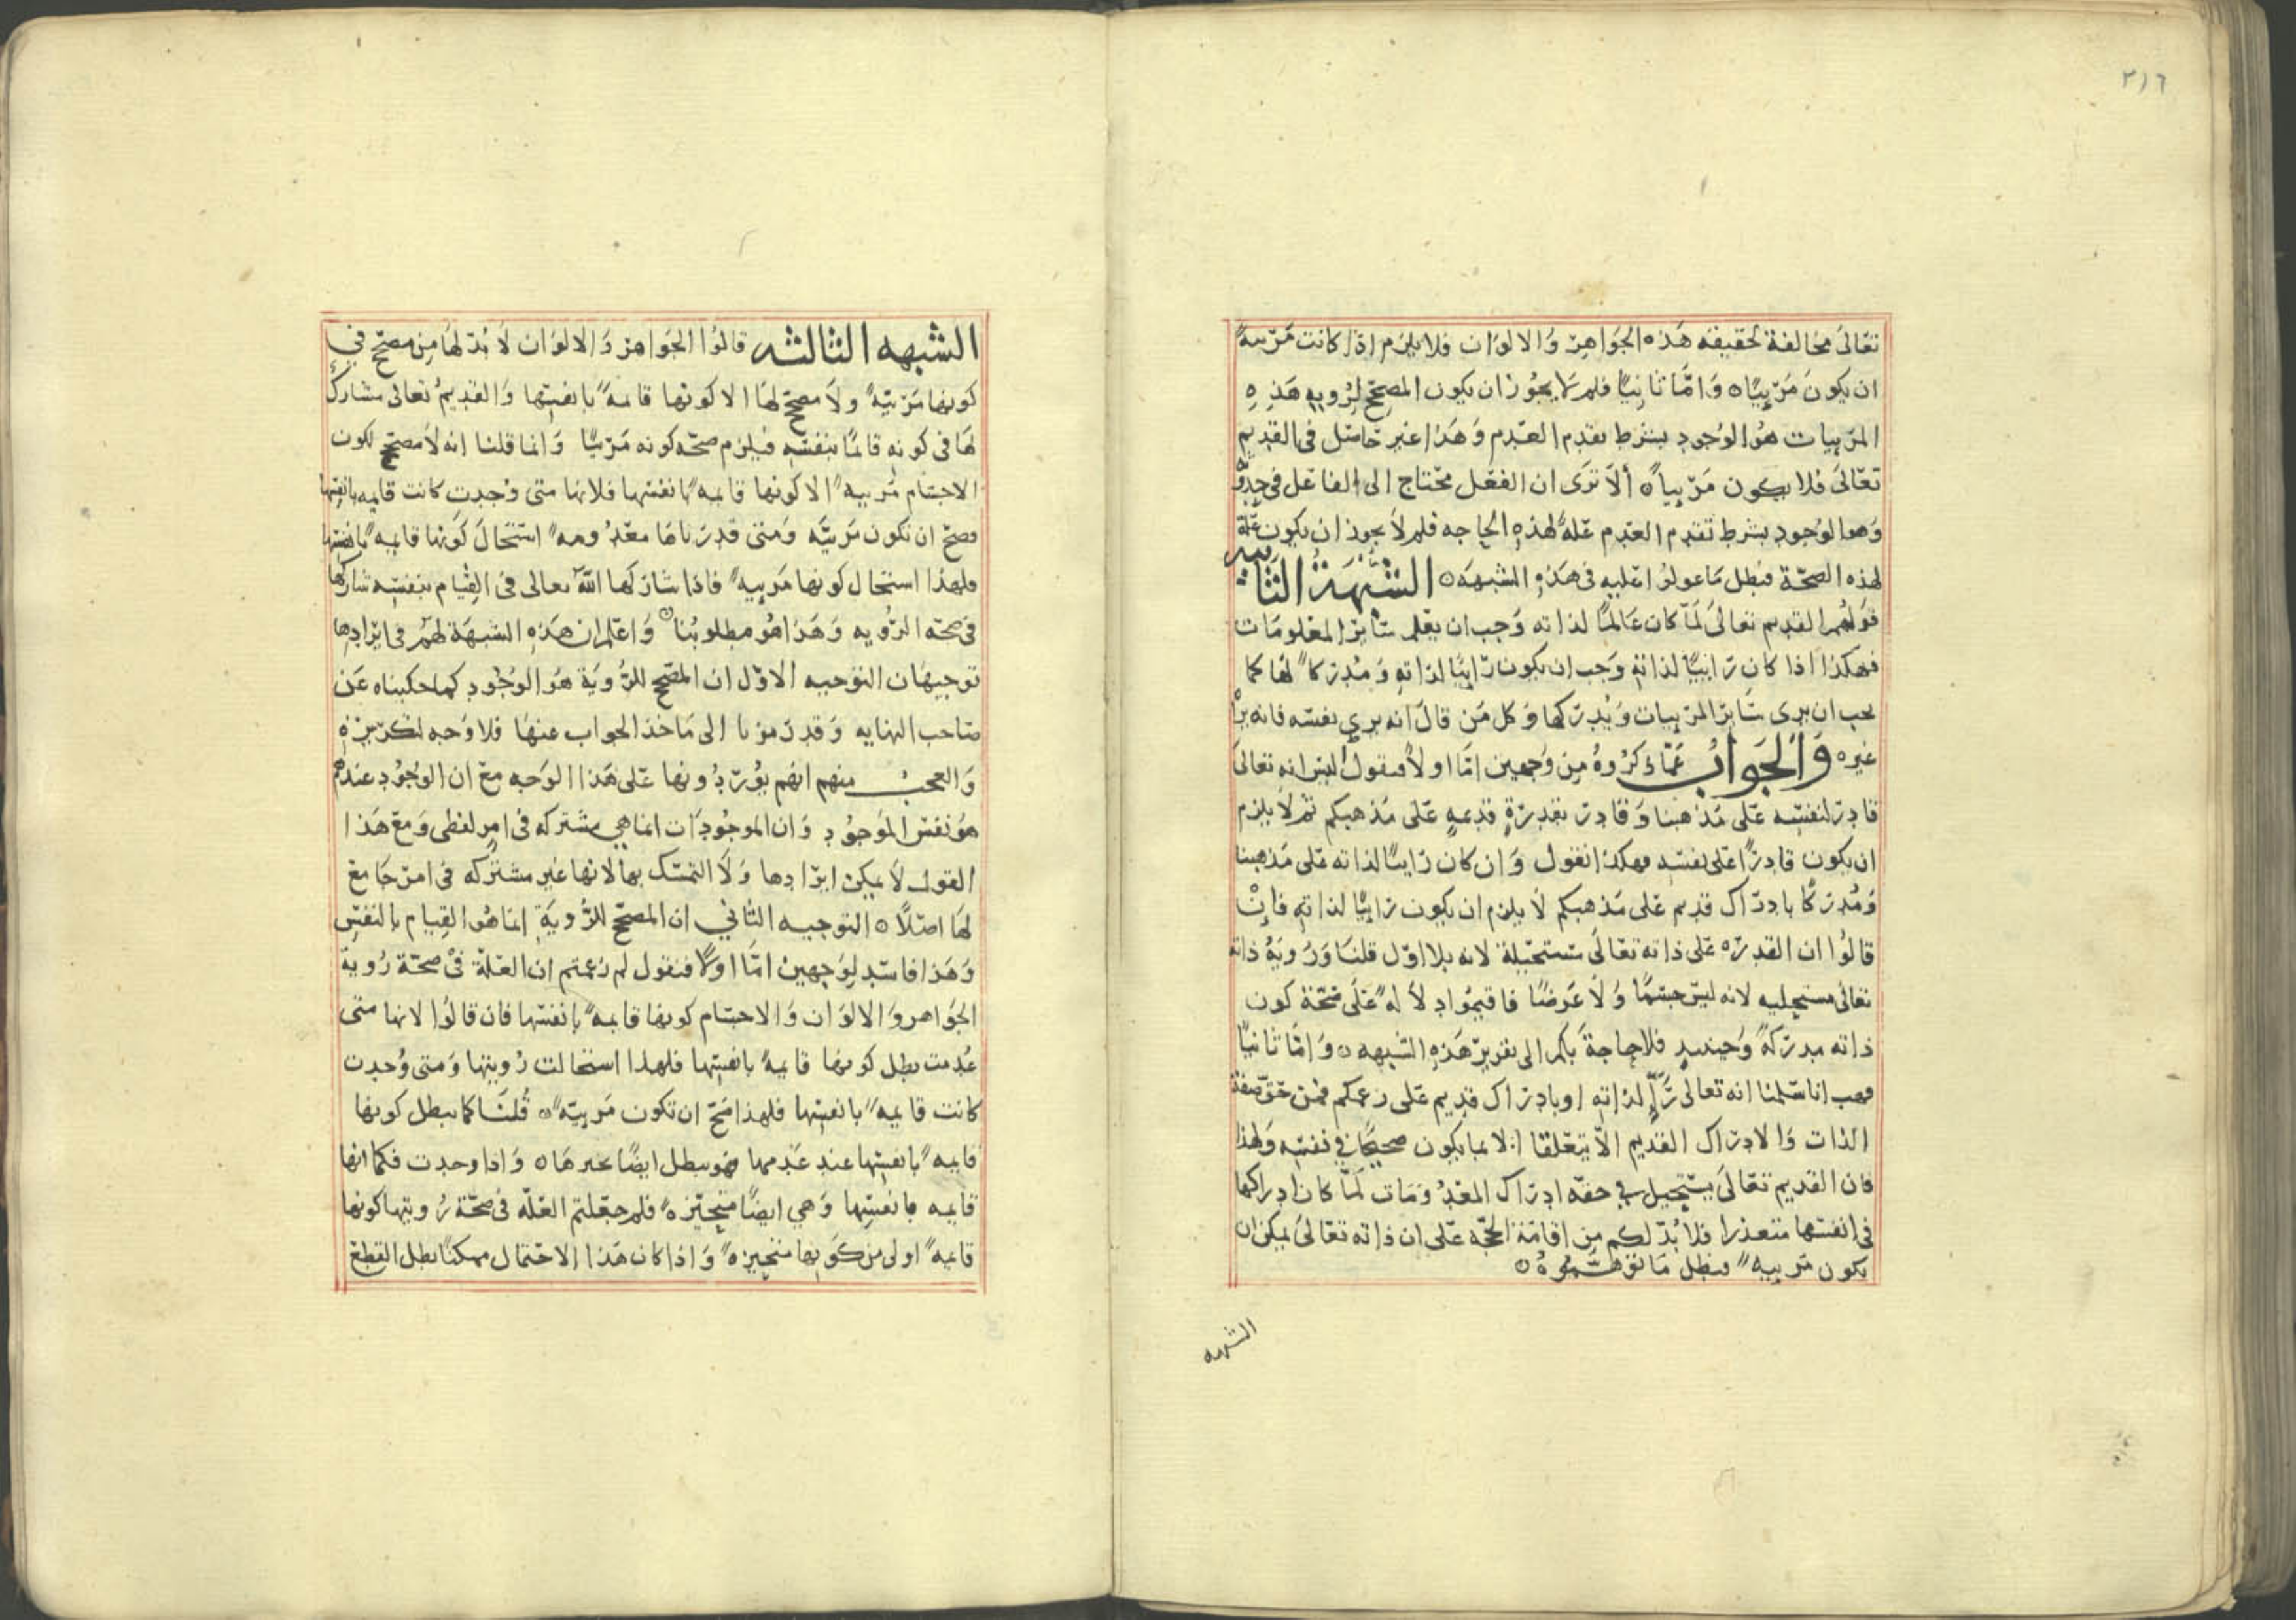 ٢١٦
تعَالىَ مخالفة لحقيقه هَذه الجَواهِرَ وُالالوَان فلا يلزم اذا كانت مَرّىىهً
ان يكونَ مَرّ ئِيًا ه وَامَّا ثانِيًا فلم لا يجوُز ان يكون المصحّح لِرُويهِ هَذِهِ
المرَئِيات هوُ الوُجود بشرط تقدم العَدم وَهَذا غير حَاصل فى القدِيم
تعَالىَ فلا يكون مَرّئِياً ه ألاَ ترَى ان الفعْل محْتاج الى الفاعل فى حِدِوُثه
وَهو الوُجود بشرط تقدم العَدم عَلةً لهَذهِ الحاجه فلم لاَ يجوز ان يكون عَلة
لهذه الصحّة فبطل مَا عولوُا عَليه فى هَذهِ الشبهَه ه الشُّبْهَةُ الثانيه
قوَلهُم القديم تعَالىَ لمَّا كان عَالمًا لذاته وَجب ان يعْلم سَايرَ المعْلومَات
فهكذا اذا كان رَائِيًا لذاتهِ وَجب ان يكون رَائِيًا لذاتهِ وَمُدرَكاً لهَا كما
يجب ان يرى سَايرَ المرَئِيات وَيُدرَكها وَكل مَن قالَ انه يرى نفسَه فانه يرَى
غيره ه وَالجَوَابُ عَمّا ذكرُوهُ مِن وَجهين امَّا اولاً فنقول اليسَ انه تعَالىَ
قادِرَ لنفسِه عَلى مَذهبنا وَقادِرَ بقدِرَةٍ قدِيمهٍ عَلى مَذهبكم ثم لاَ يلزم
ان يكون قادِرًا عَلى نفسِه فهكذا نقول وَان كان رَائيًا لذاته عَلى مَذهبنا
وَمُدرَكًا بادرَاك قديم عَلى مَذهبكم لاَ يلزم ان يكون رَائيًا لذاتهِ فانْ
قالوُا ان القدرَه عَلى ذاته تعَالىَ مسَتحَيلة لانه بلا اوّل قلنَا وَرُوية ذاته
تعَالىَ مستحيليه لانه ليسَ جسمًا وَلاَ عَرَضًا فاقيموُا دِلاَلهً عَلى صَحّة كون
ذاته مدرَكةً وَحينئيدٍ فلاحاجة بَكم الى تقريرَ هَذهِ الشبهه ه وَامَّا ثانيًا
فهب انا سَلمنا انه تعَالى رَآءٍ لذاتهِ او بادرَاك قديم عَلى زعمكم فمن حَقّ صَفة
الذات وَالادرَاك القديم الاَّ يتعَلقا الا بما يكون صحيحًا في نفسِه وَلهذا
فان القديم تعَالىَ يستحيل في حقه ادرَاك المعْدُومَات لمَّا كان ادراكها
فى انفسَها متعذرا فلا بُدّ لكم مِن اقامَة الحجّة عَلى ان ذاته تعَالىَ يمكن ان
يكون مَرئيهً فبطل مَا توَهمَّموُهُ ه
الشبهه
الشبهه الثالثه قالوُا الجَواهرَ وَالالوَان لاَ بُدّ لهَا مِن مصحّح في
كونها مَرَئيّهً ولاَ مصحّح لهَا الا كونها قائمهً بانفسِها وَالقدِيمُ تعَالى مشارك
لهَا فى كونهِ قائمًا بنفسِه فيلزم صحّه كونه مَرَئيًا وَانما قلنا انه لاَ مصحّح لكون
الاجسَام مَرئيهً الا كونها قايمهً بانفسَها فلانها متى وُجدِت كانت قايمه بانفسِها
فصحّ ان تكون مَرئيَّه وَمتى قدرَناها معْدُومهً اسْتحَالَ كَونها قايمهً بانفسِها
فلهذا استحال كونها مَرئيهً فاذا شارَكها اللهَ تعالى فى القِيام بنفسِه شاركها
فى صحّه الرُّويه وَهَذا هوُ مطلوبُنا ه وَاعْلم ان هَذهِ الشبهَة لهَم فى ايرَادِها
توجيهَان التوَجيه الاوّل ان المصَحّح للرُّويَة هُوَ الوُجود كما حكيناه عَن
صَاحب النهايه وَقد رَمزنا الى مَاخذ الجواب عنهَا فلا وَجه لتكريرَهِ
وَالعجبُ منهم انهم يوُرَدِوُنها عَلى هَذا الوَجه معَ ان الوجُوُد عندهم
هوُ نفس الموَجوُد وَان الموجُودَات انما هي مشتركه فى امرٍ لفظى وَمعَ هَذا
القول لاَ يمكن ايرَادها وَلاَ التمسّك بها لانها غير مشتركه فى امرَ جَامع
لهَا اصَلاً ه التوجيه الثاني ان المصَحّح للرُّويَةِ انما هوُ القِيام بالنفسِ
وَهَذا فاسَد لوَجهين امَّا اوَلاً فنقول لم زعمتم ان العَلة فى صحّة رُوية
الجَواهر وَالالوَان وَالاجسَام كونها قايمهً بانفسَها فان قالوُا لانها متى
عُدِمت بطل كونها قايمهً بانفسِها فلهذا استحَالت رُويتها وَمتى وُجدِت
كانت قايمهً بانفسِها فلهذا صَحّ ان تكون مَرئيّهً ه قُلنَا كما يبطل كونها
قايمهً بانفسِها عند عَدمها فهو يبطل ايضًا تحيزهَا ه وَاذا وجدت فكما انها
قايمه بانفسِها وَهي ايضًا متحيّزهً فلم جعَلتم العَلّه فى صحّة رُويتها كونها
قايمهً اولى من كَونها متحيزهً وَاذا كان هَذا الاحتمال ممكنًا بطل القطعْ